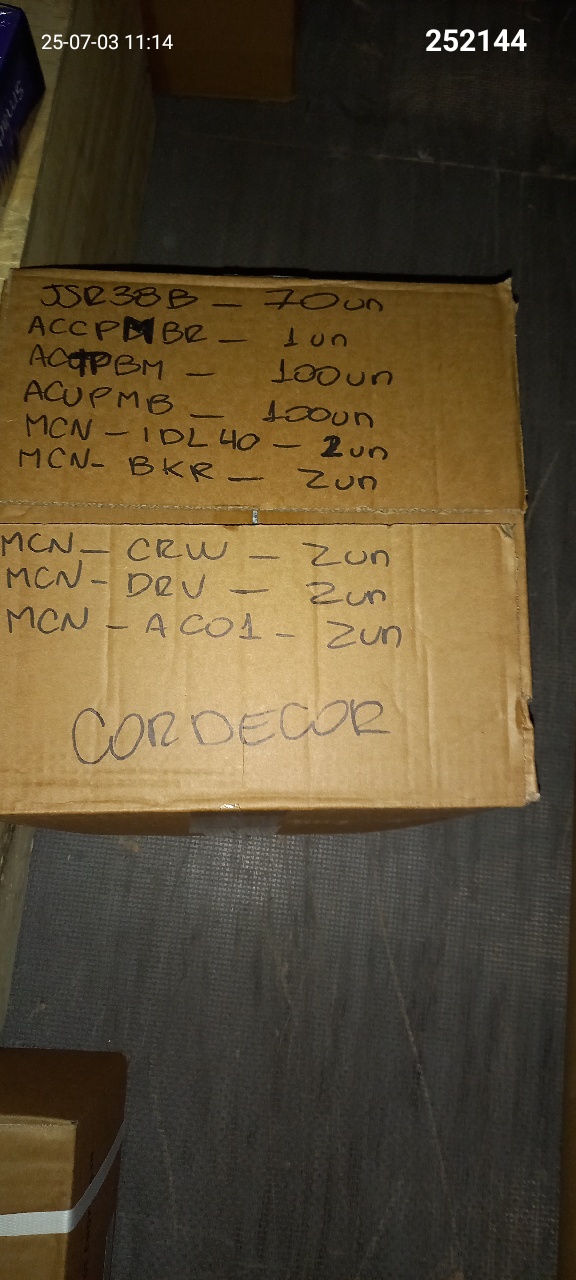 25-07-03 11:14
252144
JSR38B - 70un
ACCPMBR - 1un
ACTPBM - 100un
ACUPMB - 100un
MCN - IDL40 - 2un
MCN- BKR - 2un
MCN- CRW - 2un
MCN- DRV - 2un
MCN - ACO1 - 2un
CORDECOR